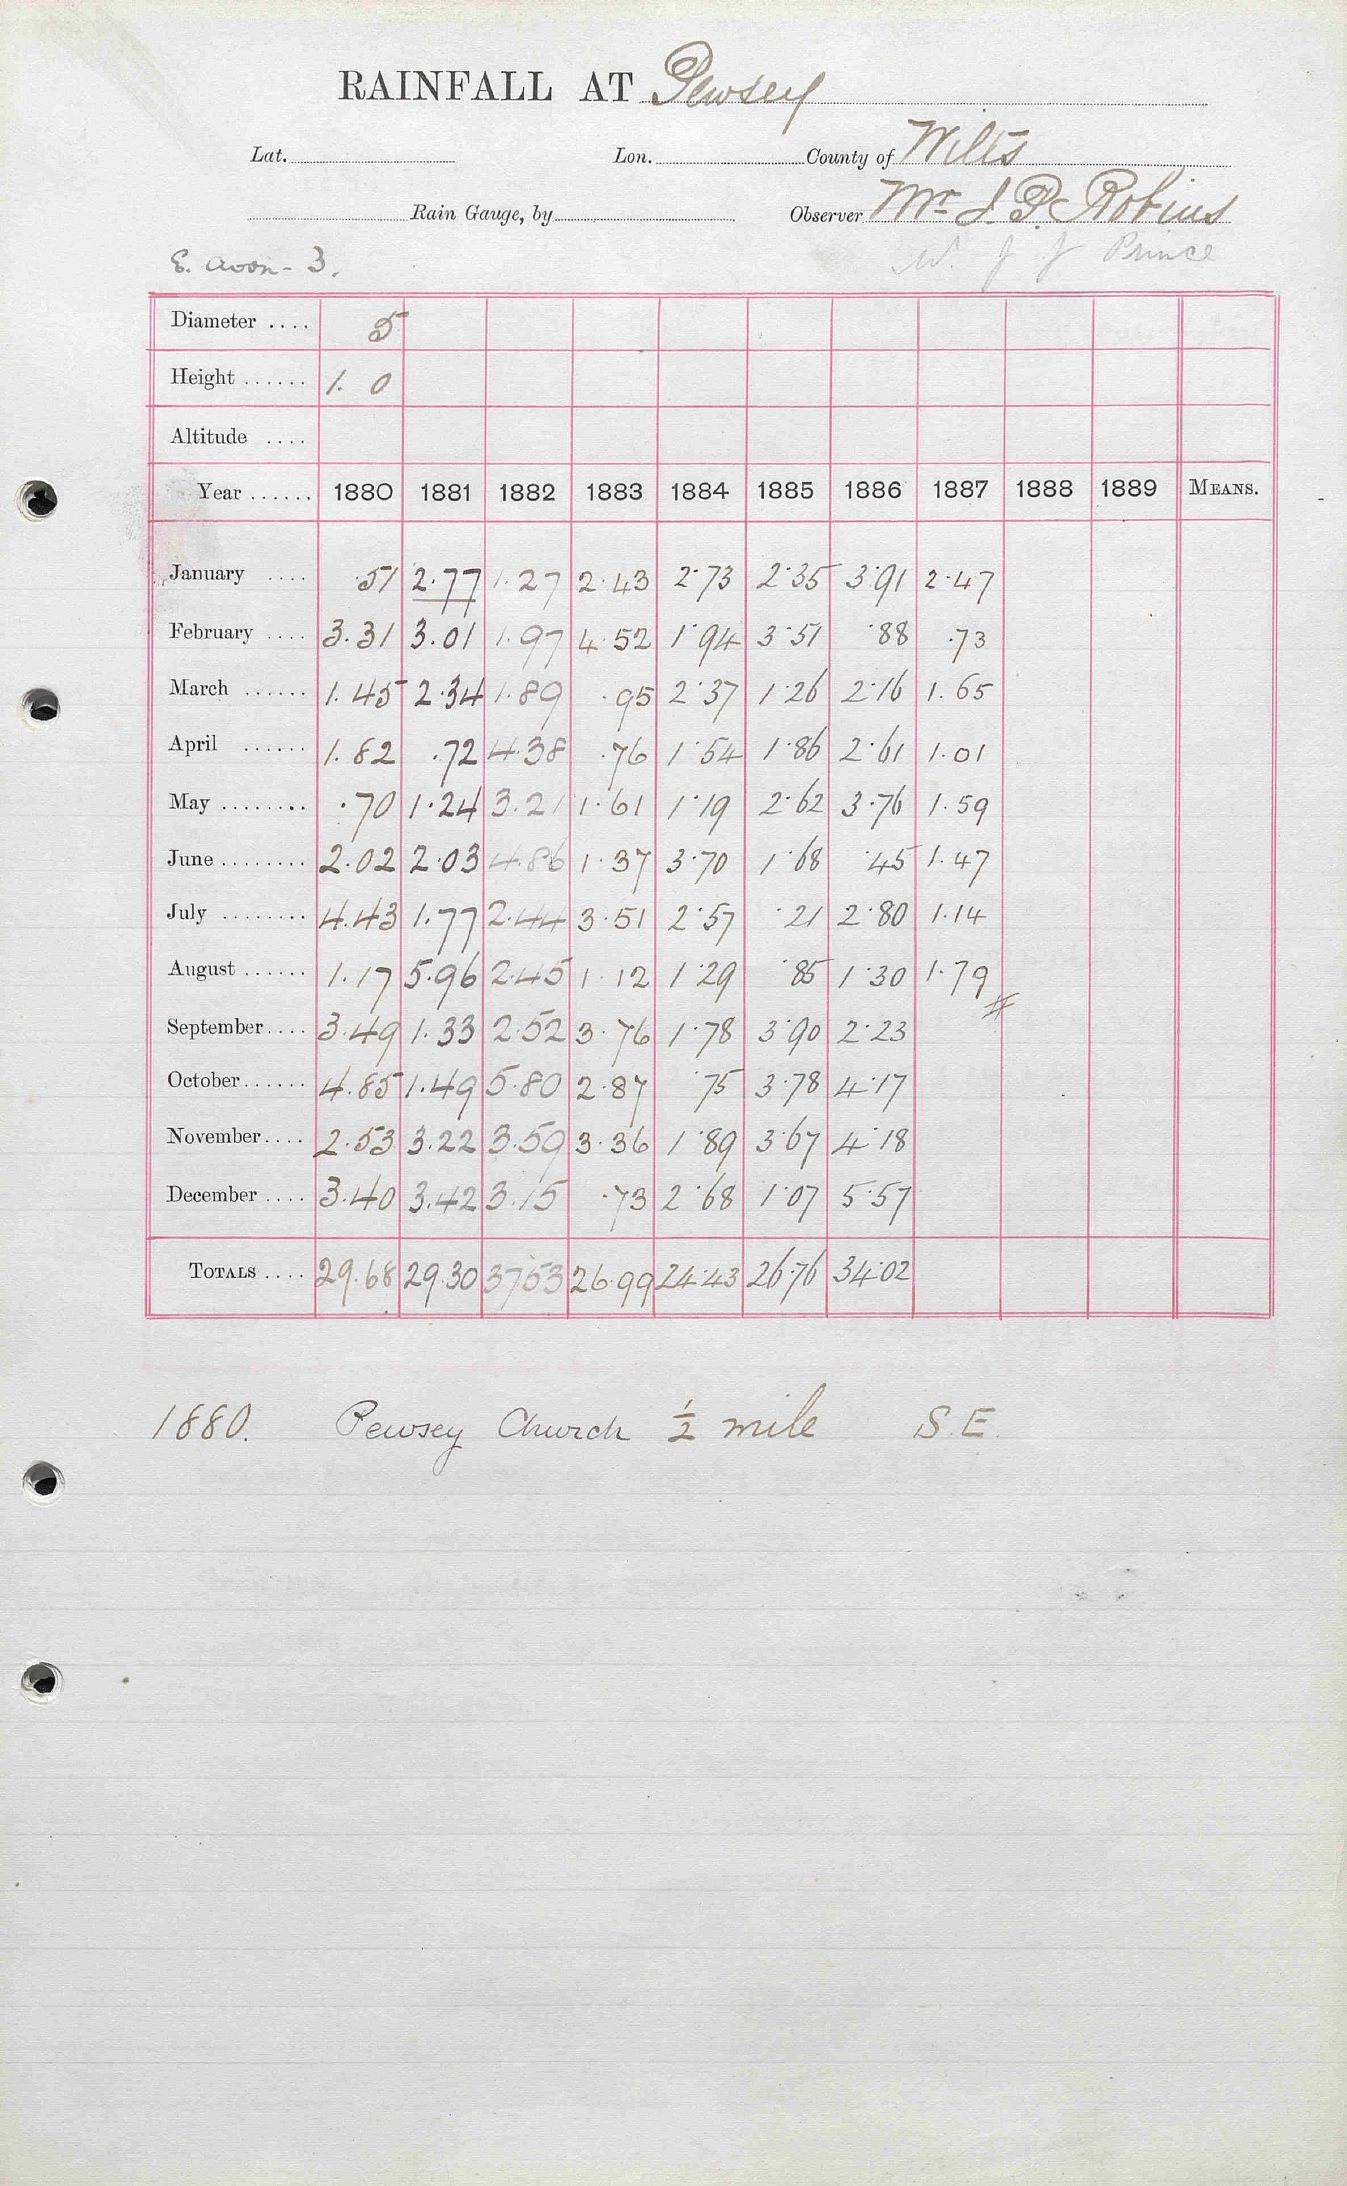 RAINFALL AT Pewsey
Lat. Lon. County of Wilts
Rain Gauge, by Observer Mr J. P. Robins
E. Avon - 3. J J Prince
Diameter .... 5
Height ...... 1. 0
Altitude ....
Year ...... 1880 1881 1882 1883 1884 1885 1886 1887 1888 1889 MEANS.
January .... .51 2.77 1.27 2.43 2.73 2.35 3.91 2.47
February .... 3.31 3.01 1.97 4.52 1.94 3.51 .88 .73
March ...... 1.45 2.34 1.89 .95 2.37 1.26 2.16 1.65
April ...... 1.82 .72 4.38 .76 1.54 1.86 2.61 1.01
May ........ .70 1.24 3.21 1.61 1.19 2.62 3.76 1.59
June ........ 2.02 2.03 4.86 1.37 3.70 1.68 .45 1.47
July ........ 4.43 1.77 2.44 3.51 2.57 .21 2.80 1.14
August ...... 1.17 5.96 2.45 1.12 1.29 .85 1.30 1.79 #
September .... 3.49 1.33 2.52 3.76 1.78 3.90 2.23
October ...... 4.85 1.49 5.80 2.87 .75 3.78 4.17
November .... 2.53 3.22 3.59 3.36 1.89 3.67 4.18
December .... 3.40 3.42 3.15 .73 2.68 1.07 5.57
TOTALS .... 29.68 29.30 37.53 26.99 24.43 26.76 34.02
1880. Pewsey Church ½ mile S.E.